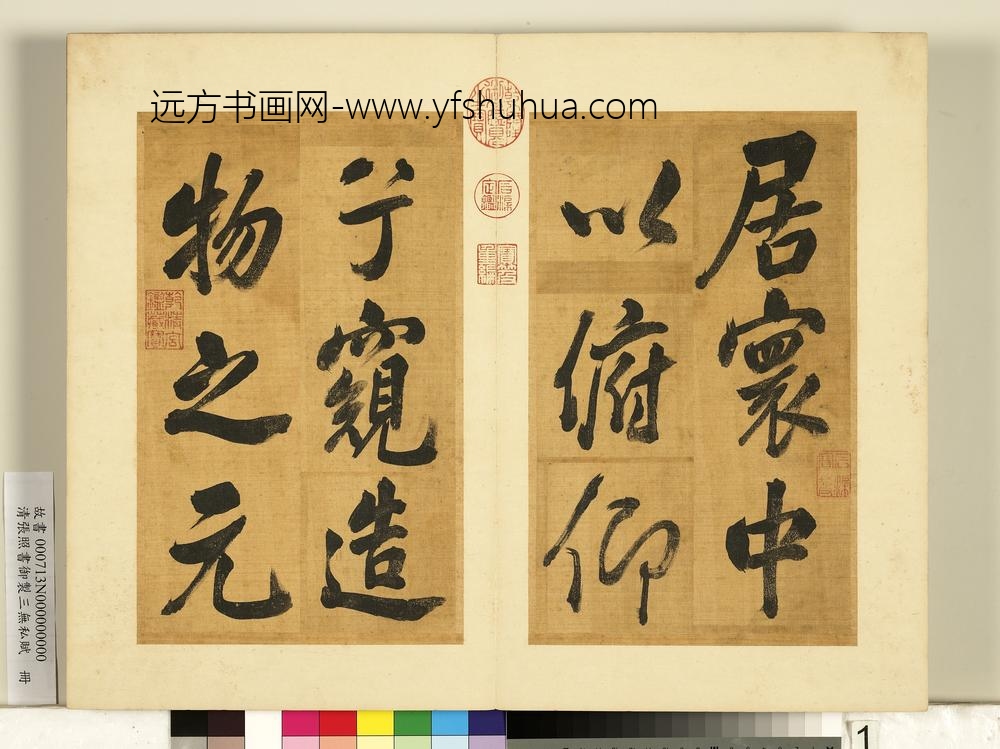 远方书画网-www.yfshuhua.com
居寰中
以俯仰
兮窺造
物之元
乾清宮鑑藏寶
故書 000713N000000000
清張照書御製三無私賦 冊
1